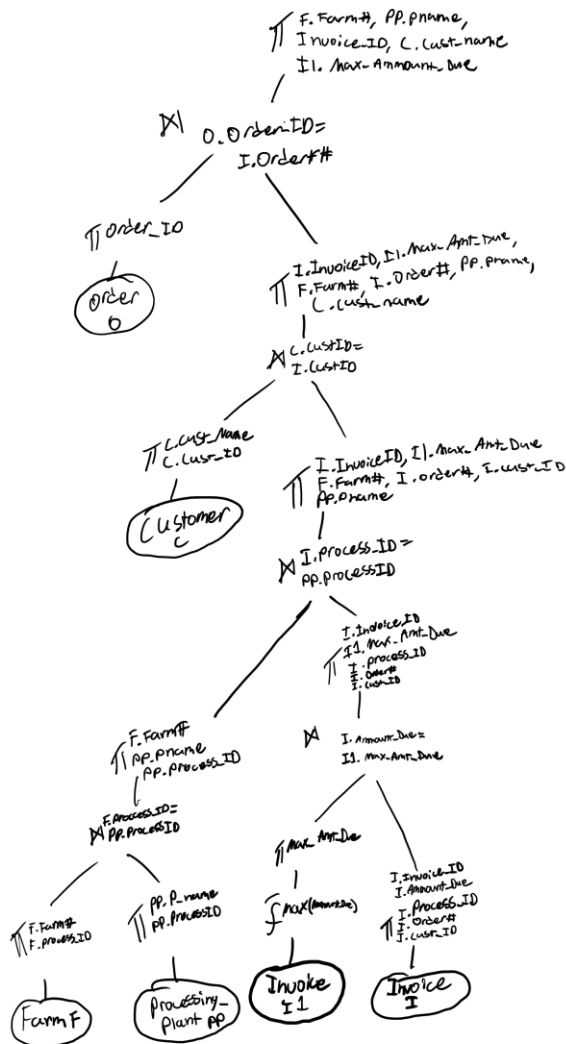 π F.Farm#, PP.pname,
Invoice_ID, C.Cust_name
I1.Max_Ammount_Due
⋈ O.Order_ID=
I.Order##
π Order_ID
Order
O
π I.InvoiceID, I1.Max_Amt_Due,
F.Farm#, I.Order#, PP.pname,
C.Cust_name
⋈ C.CustID=
I.CustID
π C.Cust_Name
C.Cust_ID
Customer
C
π I.InvoiceID, I1.Max_Amt_Due
F.Farm#, I.order#, I.cust_ID
PP.pname
⋈ I.process_ID=
PP.processID
π I.Invoice_ID
I1.Max_Amt_Due
I.process_ID
I.Order#
I.cust_ID
π F.Farm#
PP.pname
PP.process_ID
⋈ I.Amount_Due=
I1.Max_Amt_Due
⋈ F.Proccess_ID=
PP.ProcessID
π Max_Amt_Due
π F.Farm#
F.process_ID
π PP.P_name
PP.processID
f max(AmountDue)
π I.Invoice_ID
I.Amount_Due
I.Process_ID
I.Order#
I.cust_ID
Farm F
Processing_
Plant PP
Invoice
I1
Invoice
I